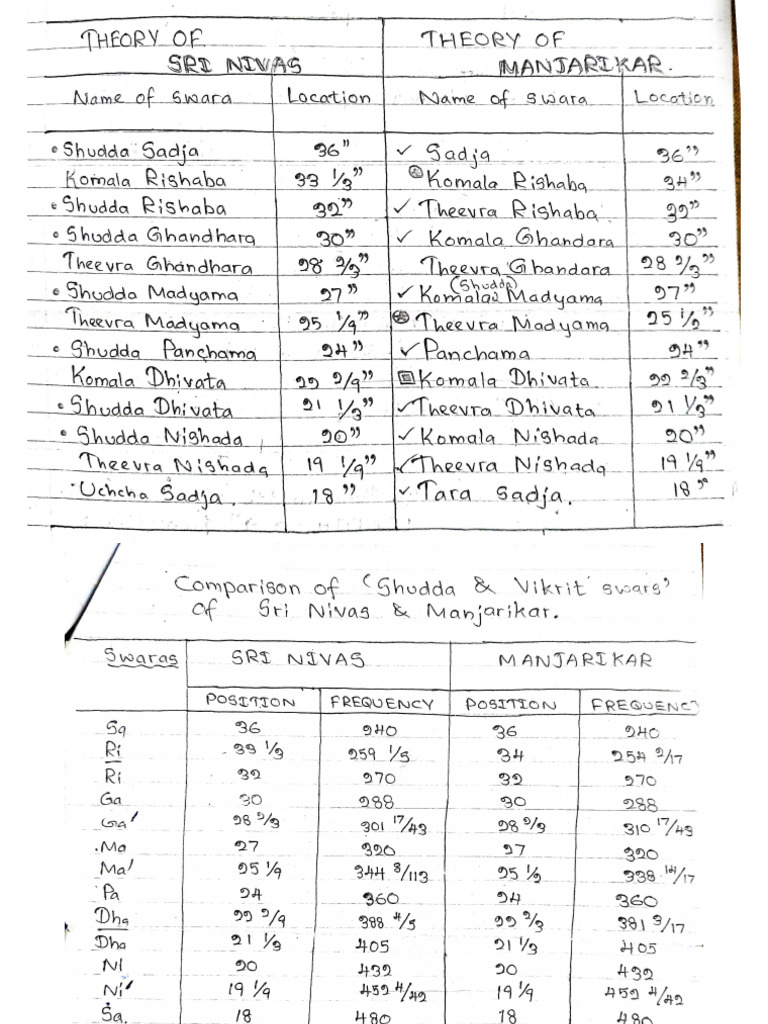 THEORY OF THEORY OF
SRI NIVAS MANJARIKAR.
Name of swara Location Name of swara Location
• Shudda Sadja 36" ✓ Sadja 36"
Komala Rishaba 33 1/3" Komala Rishaba 34"
• Shudda Rishaba 32" ✓ Theevra Rishaba 32"
• Shudda Ghandhara 30" ✓ Komala Ghandara 30"
Theevra Ghandhara 28 2/3" Theevra Ghandara 28 2/3"
(Shudda)
• Shudda Madyama 27" ✓ Komala Madyama 27"
Theevra Madyama 25 1/9" Theevra Madyama 25 1/2"
• Shudda Panchama 24" ✓ Panchama 24"
Komala Dhivata 22 2/9" Komala Dhivata 22 2/3"
• Shudda Dhivata 21 1/3" ✓ Theevra Dhivata 21 1/3"
• Shudda Nishada 20" ✓ Komala Nishada 20"
Theevra Nishada 19 1/9" ✓ Theevra Nishada 19 1/9"
• Uchcha Sadja. 18" ✓ Tara Sadja. 18"
Comparison of 'Shudda & Vikrit swars'
of Sri Nivas & Manjarikar.
Swaras SRI NIVAS MANJARIKAR
POSITION FREQUENCY POSITION FREQUENC
Sa 36 240 36 240
Ri 33 1/3 259 1/5 34 254 2/17
Ri 32 270 32 270
Ga 30 288 30 288
Ga' 28 2/3 301 17/43 28 2/3 310 17/43
.Ma 27 320 27 320
Ma' 25 1/9 344 8/113 25 1/2 338 14/17
Pa 24 360 24 360
Dha 22 2/9 388 4/5 22 2/3 381 3/17
Dha 21 1/3 405 21 1/3 405
Ni 20 432 20 432
Ni' 19 1/9 452 4/42 19 1/9 452 4/42
Sa. 18 480 18 480